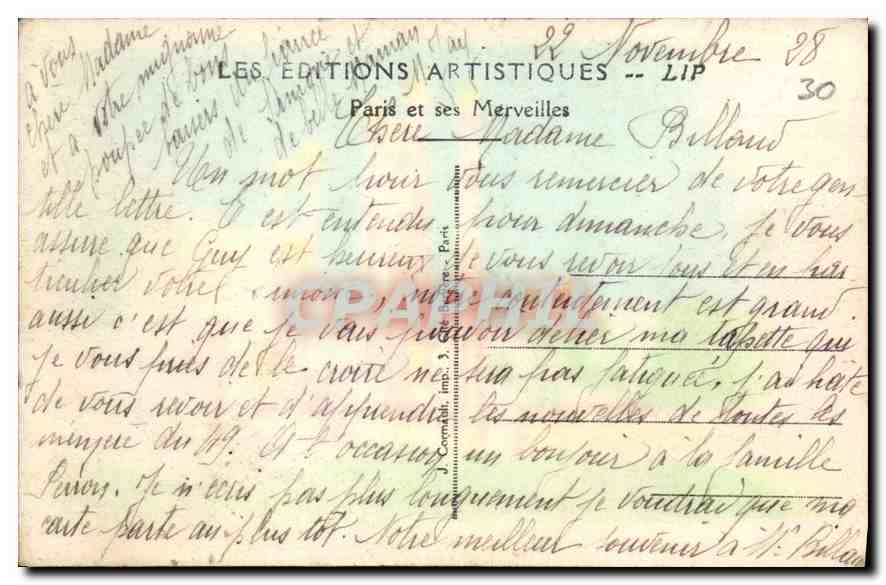 22 Novembre 28
30
LES EDITIONS ARTISTIQUES -- LIP
Paris et ses Merveilles
Chère Madame Billaud
Un mot pour vous remercier de votre gen-
tille lettre. C'est entendu pour dimanche, je vous
assure que Guy est heureux de vous revoir tous et en par
ticulier votre mignonne, notre contentement est grand
aussi c'est que je vais pouvoir délier ma tapette qui
je vous prie de le croire ne sera pas fatiguée. J'ai hâte
de vous revoir et d'apprendre les nouvelles de toutes les
du 49. A l'occasion un bonjour à la famille
Perron. Je n'écris pas plus longuement je voudrai que ma
carte parte au plus tôt. Notre meilleur souvenir à Mr Billaud
à vous
chère Madame
et à votre mignonne
poupée de bons
baisers du fiancé
de et
de belle Maman
J. Cormault, imp. 3, Paris